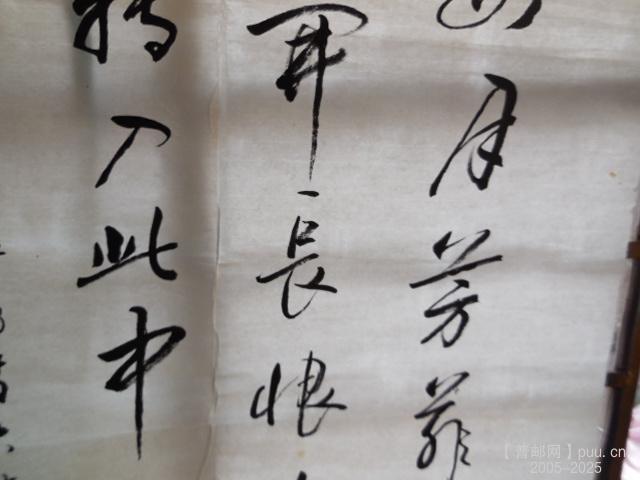 四月芳菲
开長恨
轉入此中
【普邮网】puu.cn
2005-2025